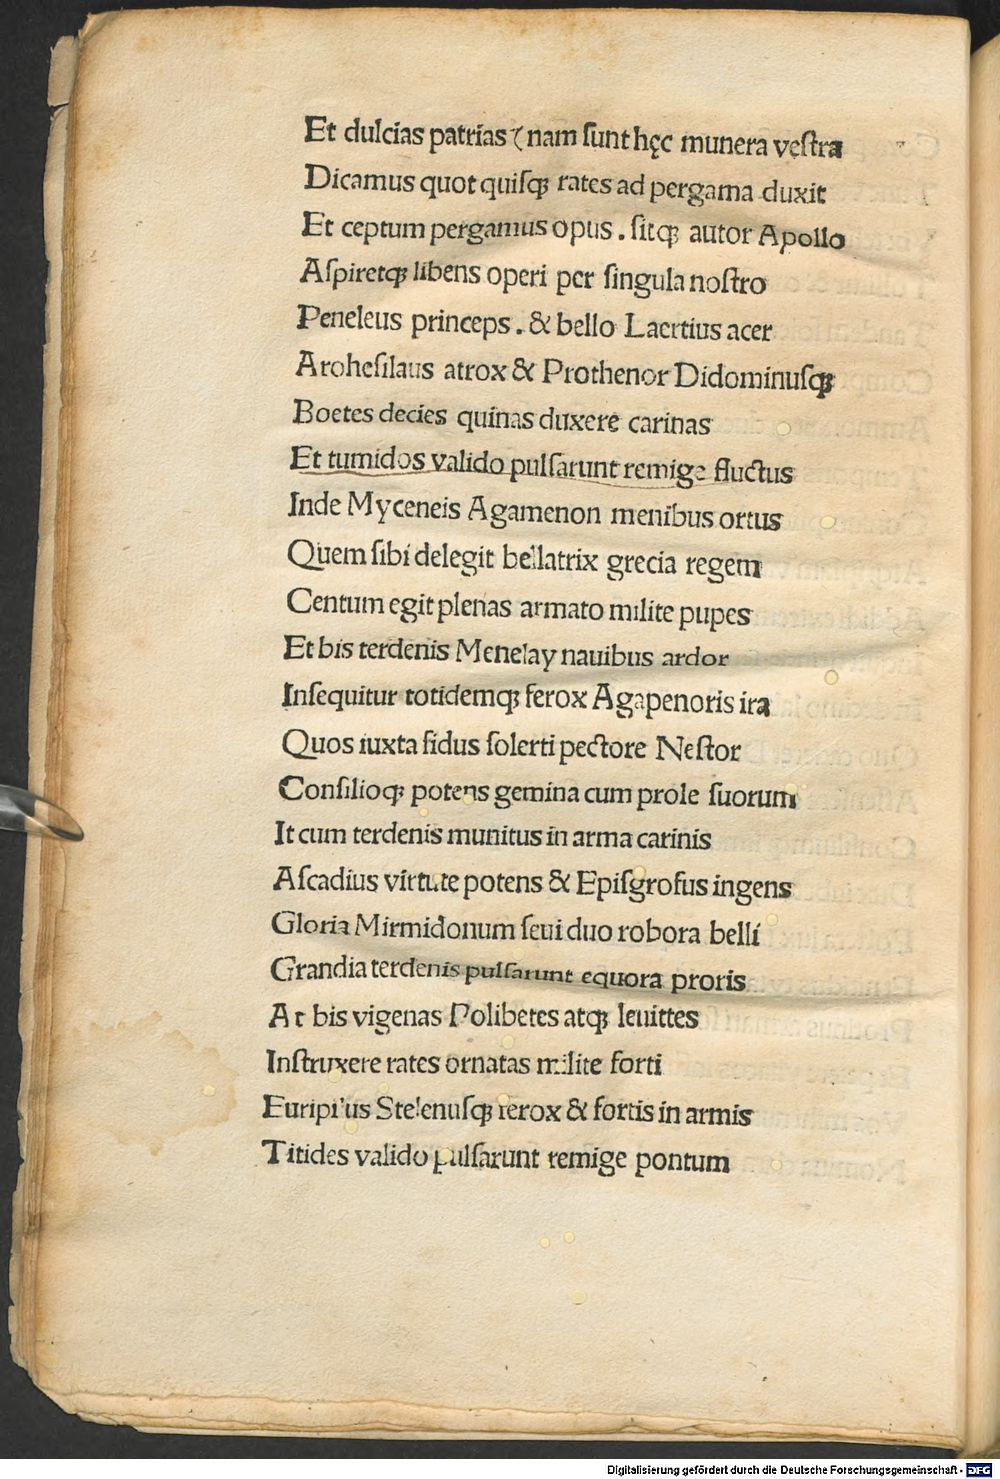 Et dulcias patrias (nam ſunt hęc munera veſtra
Dicamus quot quiſqꝫ rates ad pergama duxit
Et ceptum pergamus opus . ſitqꝫ autor Apollo
Aſpiretqꝫ libens operi per ſingula noſtro
Peneleus princeps . & bello Laertius acer
Aroheſilaus atrox & Prothenor Didominuſqꝫ
Boetes decies quinas duxere carinas
Et tumidos valido pulſarunt remige fluctus
Inde Myceneis Agamenon menibus ortus
Quem ſibi delegit bellatrix grecia regem
Centum egit plenas armato milite pupes
Et bis terdenis Menelay nauibus ardor
Inſequitur totidemqꝫ ferox Agapenoris ira
Quos iuxta fidus ſolerti pectore Neſtor
Conſilioqꝫ potens gemina cum prole ſuorum
It cum terdenis munitus in arma carinis
Aſcadius virtute potens & Epiſgrofus ingens
Gloria Mirmidonum ſeui duo robora belli
Grandia terdenis pulſarunt equora proris
At bis vigenas Polibetes atqꝫ leuittes
Inſtruxere rates ornatas milite forti
Euripilus Stelenuſqꝫ ferox & fortis in armis
Titides valido pulſarunt remige pontum
Digitalisierung gefördert durch die Deutsche Forschungsgemeinschaft - DFG